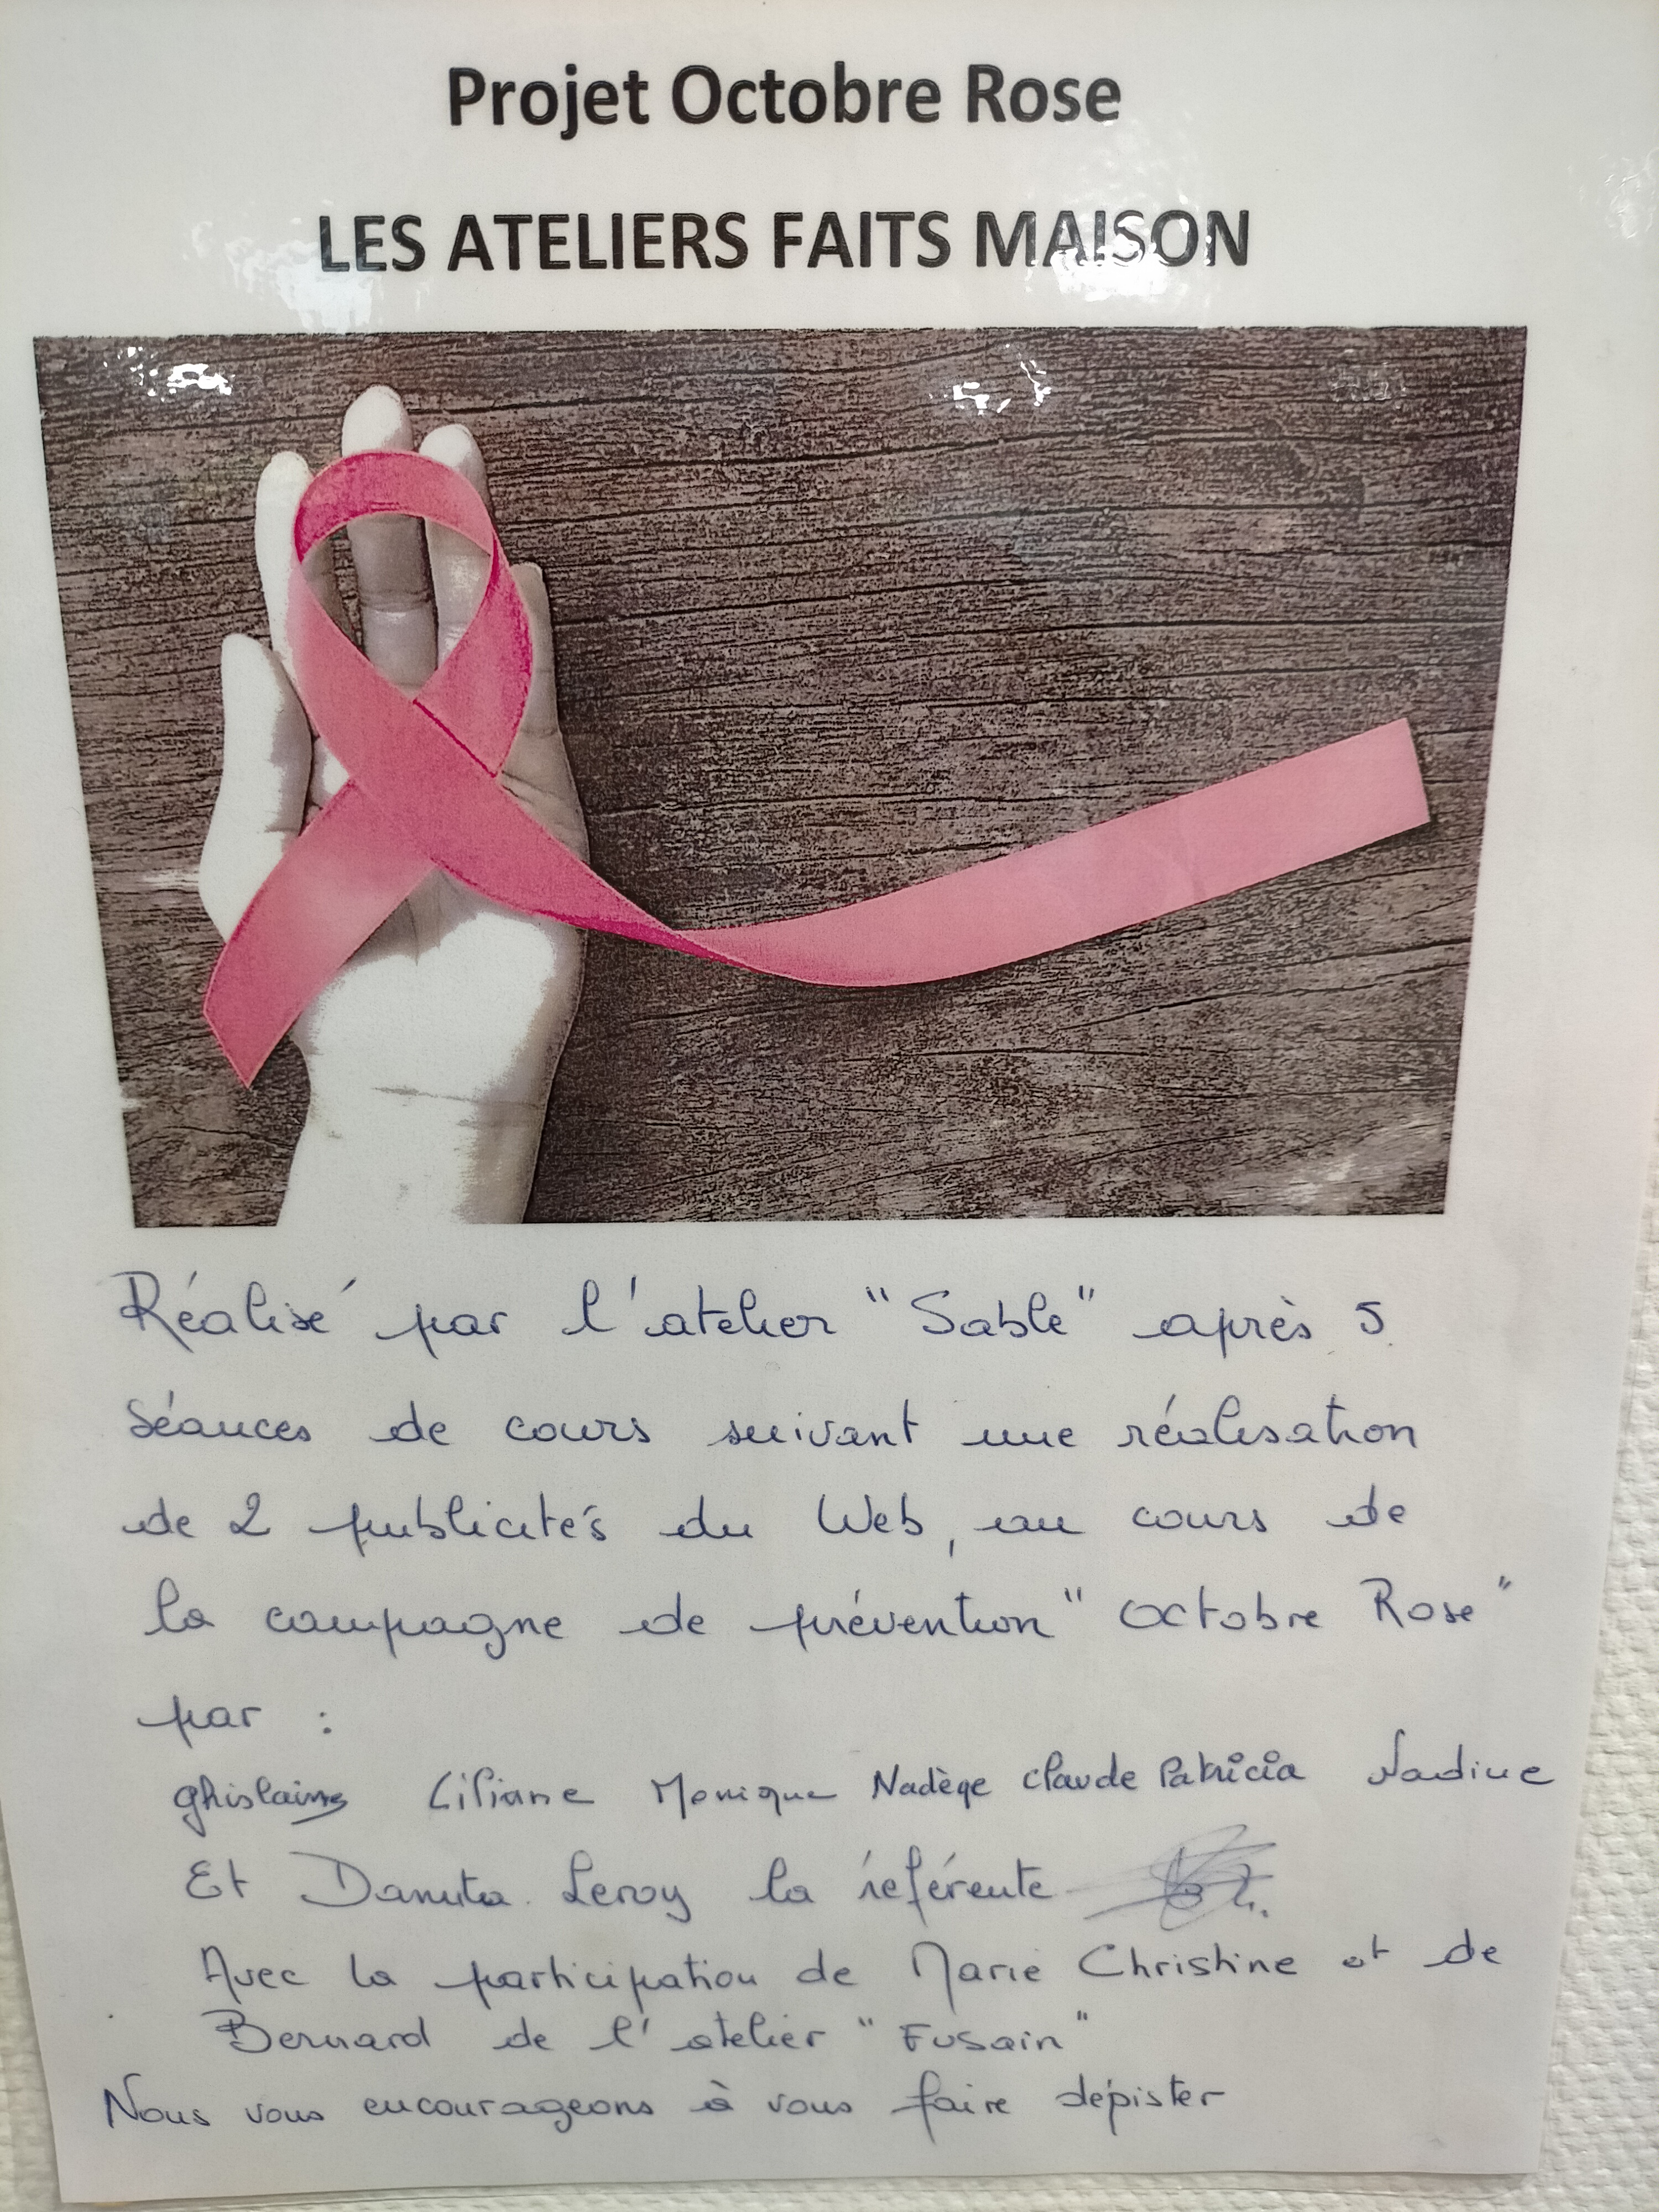 Projet Octobre Rose
LES ATELIERS FAITS MAISON
Réalisé par l'atelier "Sable" après 5
séances de cours suivant une réalisation
de 2 publicités du Web, au cours de
la campagne de prévention "Octobre Rose"
par :
Ghislaine Liliane Monique Nadège Claude Patricia Nadine
Et Danuta Leroy la référente
Avec la participation de Marie Christine et de
Bernard de l'atelier "Fusain"
Nous vous encourageons à vous faire dépister